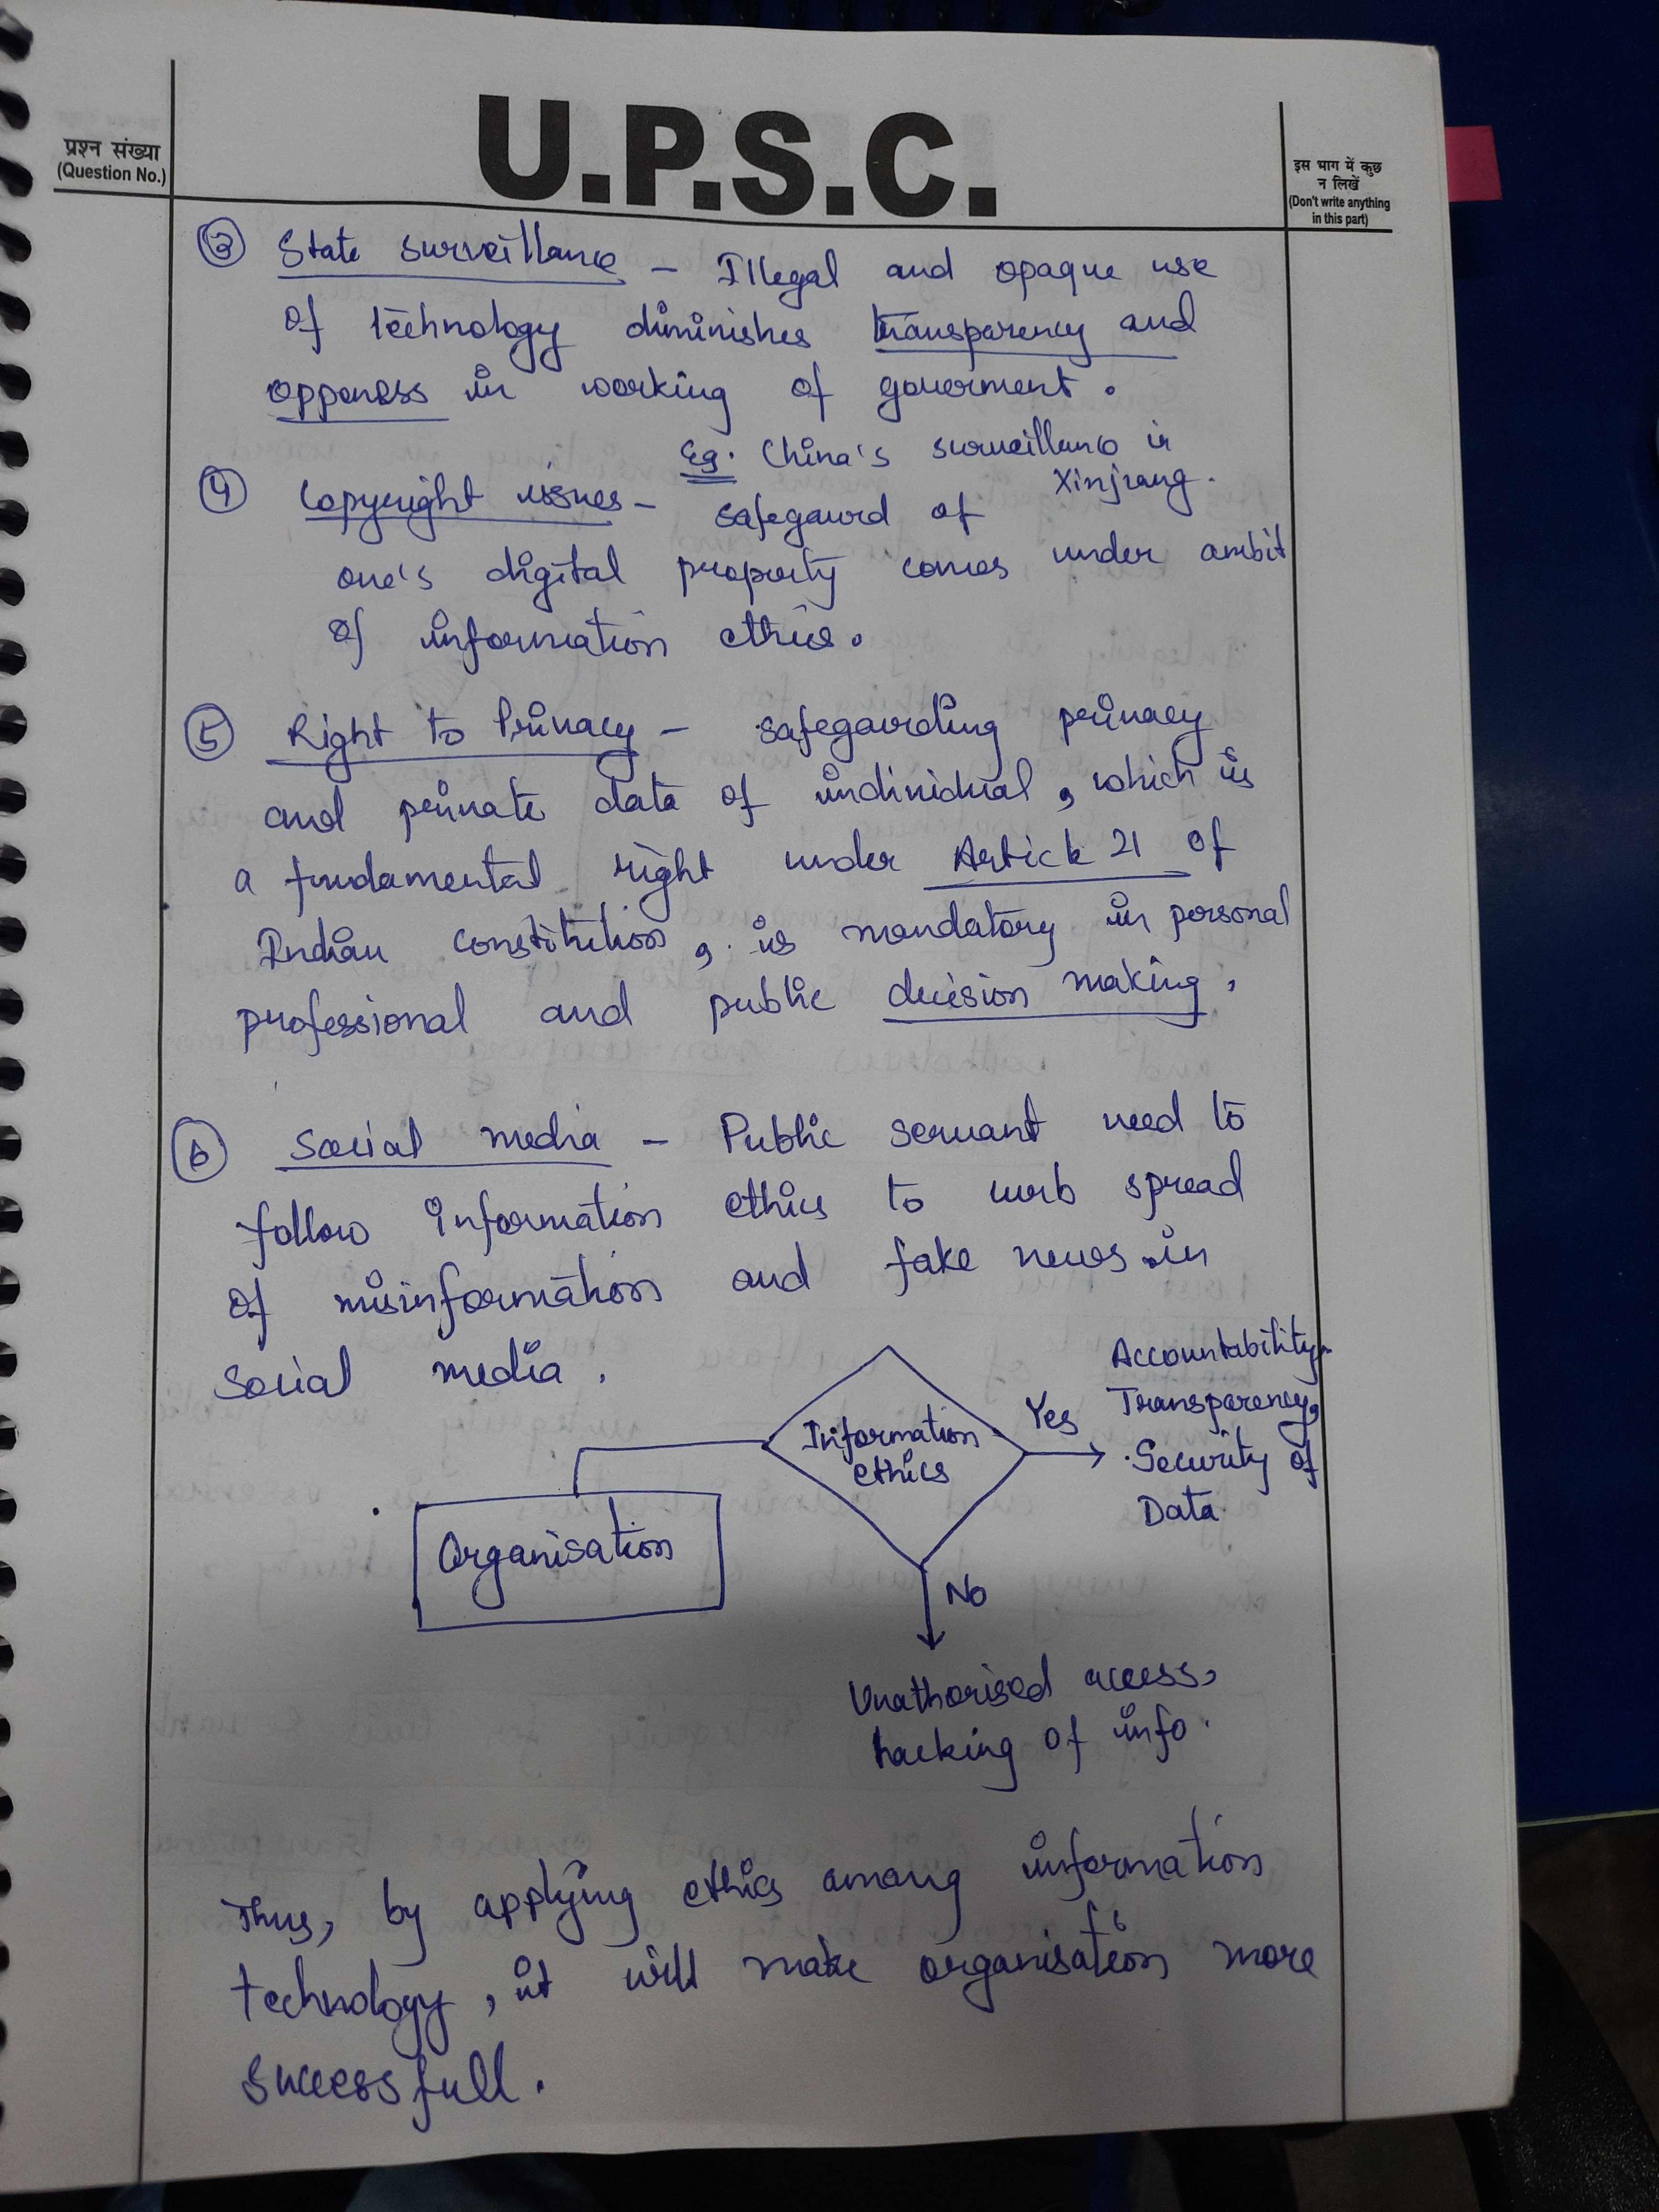 प्रश्न संख्या
(Question No.)
U.P.S.C.
इस भाग में कुछ
न लिखें
(Don't write anything
in this part)
③ State surveillance – Illegal and opaque use
of technology diminishes transparency and
oppeness in working of goverment.
Eg. China's surveillance in
Xinjiang.
④ Copyright issues – safegaurd of
one's digital property comes under ambit
of information ethics.
⑤ Right to Privacy – safegaurding privacy
and private data of individual, which is
a fundamental right under Article 21 of
Indian constitution, is mandatory in personal
professional and public decision making.
⑥ Social media – Public servant need to
follow information ethics to curb spread
of misinformation and fake news in
social media.
Organisation
Information
ethics
Yes
Accountability,
Transparency,
Security of
Data
No
Unathorised access,
hacking of info.
Thus, by applying ethics among information
technology, it will make organisation more
successfull.